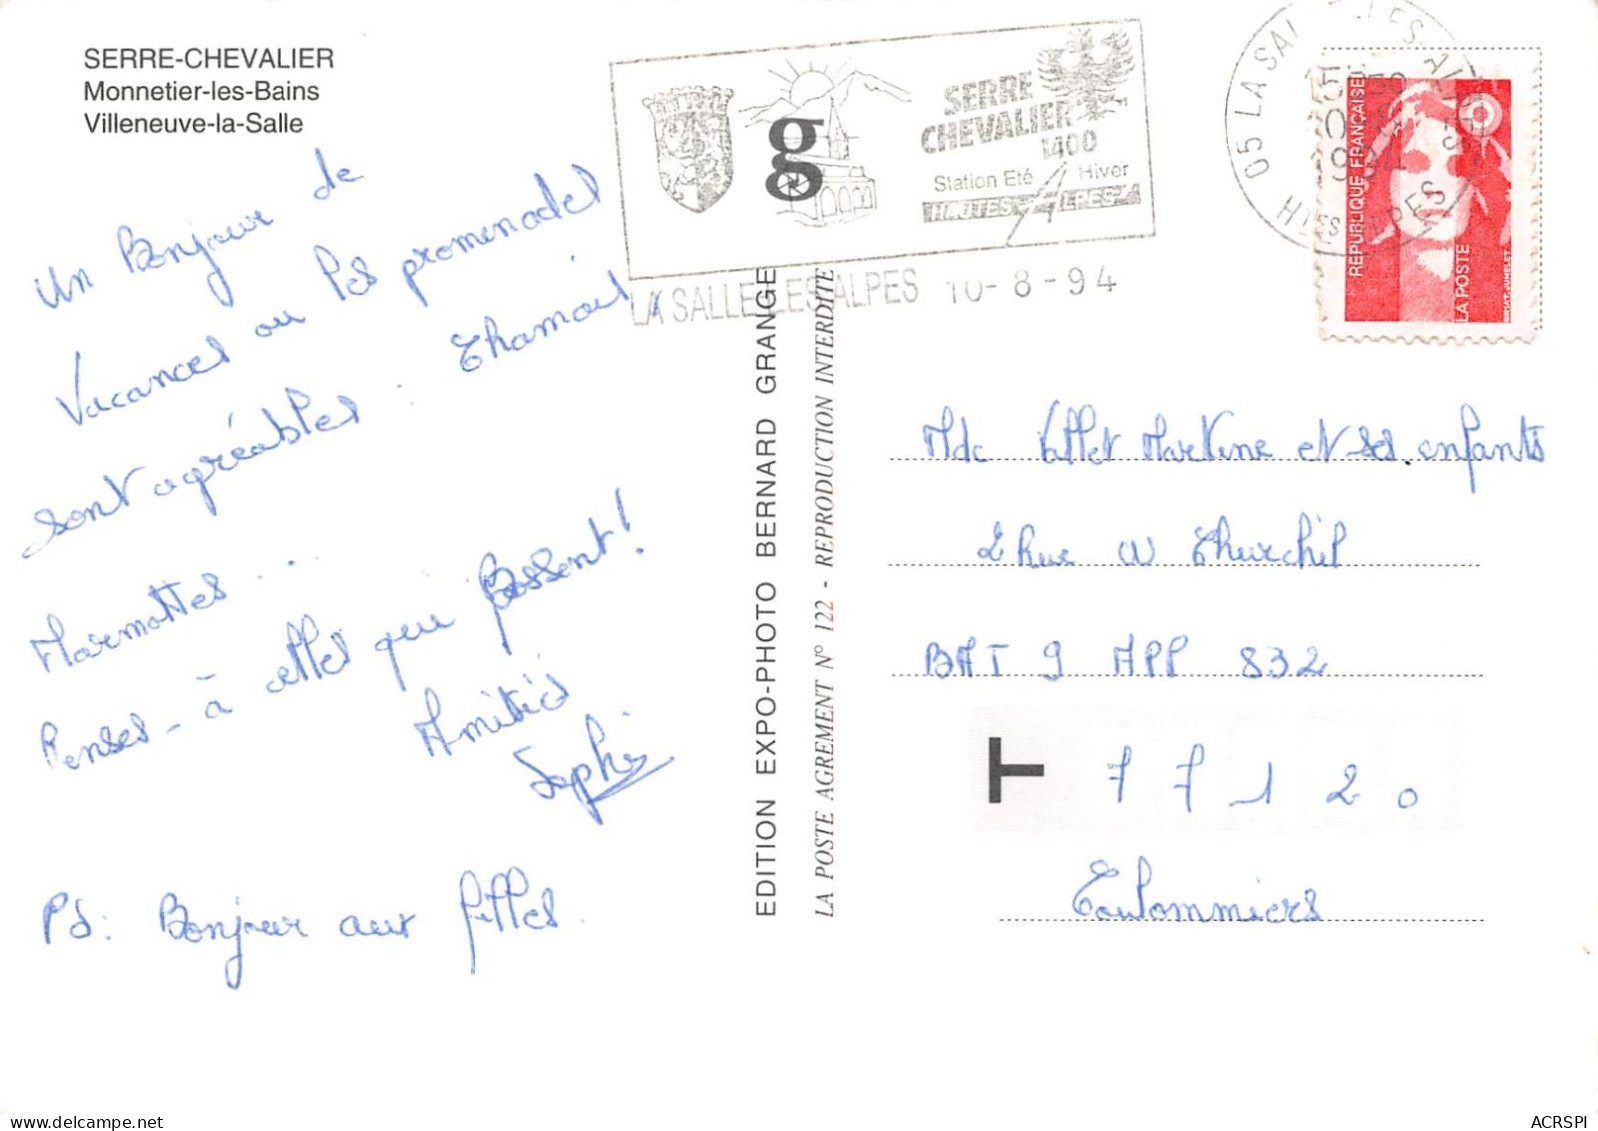 SERRE-CHEVALIER
Monnetier-les-Bains
Villeneuve-la-Salle
Un Bonjour de
Vacances ou les promenades
sont agréables. Chamois,
Marmottes...
Penses-à celles qui passent!
Amitiés
Sophie
PS: Bonjour aux filles.
EDITION EXPO-PHOTO BERNARD GRANGE
LA POSTE AGREMENT N° 122 - REPRODUCTION INTERDITE
g
SERRE
CHEVALIER
1400
Station Eté Hiver
HAUTES ALPES
LA SALLE LES ALPES 10-8-94
05 LA SALLE LES ALPES
HTES ALPES
REPUBLIQUE FRANÇAISE
LA POSTE
BRIAT.JUMELET
Mde Vallet Martine et ses enfants
2 Rue W Churchil
BAT 9 APP 832
T 77120
Coulommiers
ACRSPI